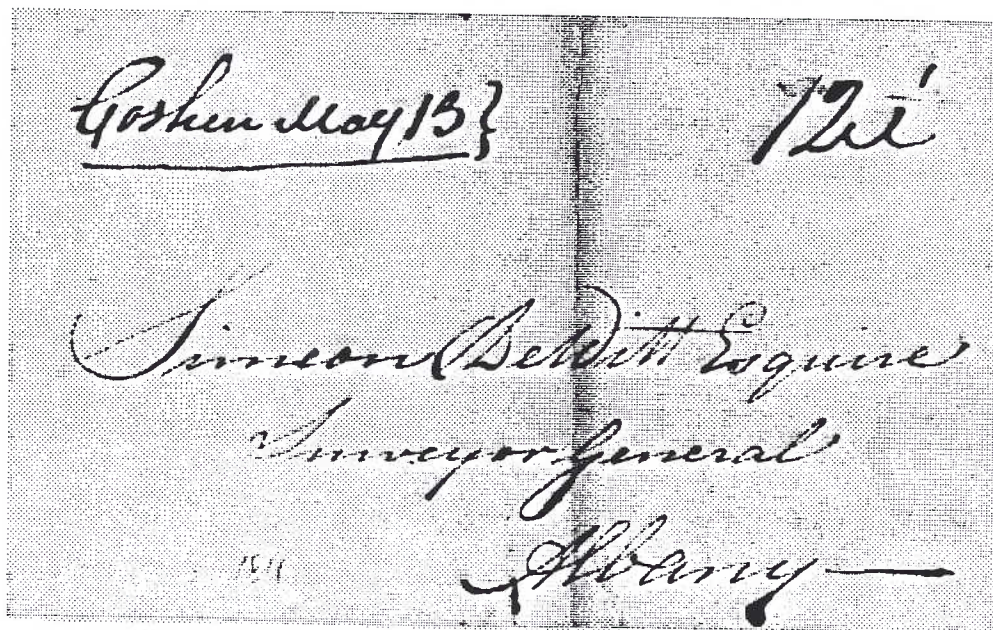 Goshen May 13}
Simeon DeWitt Esquire
Surveyor General
Albany